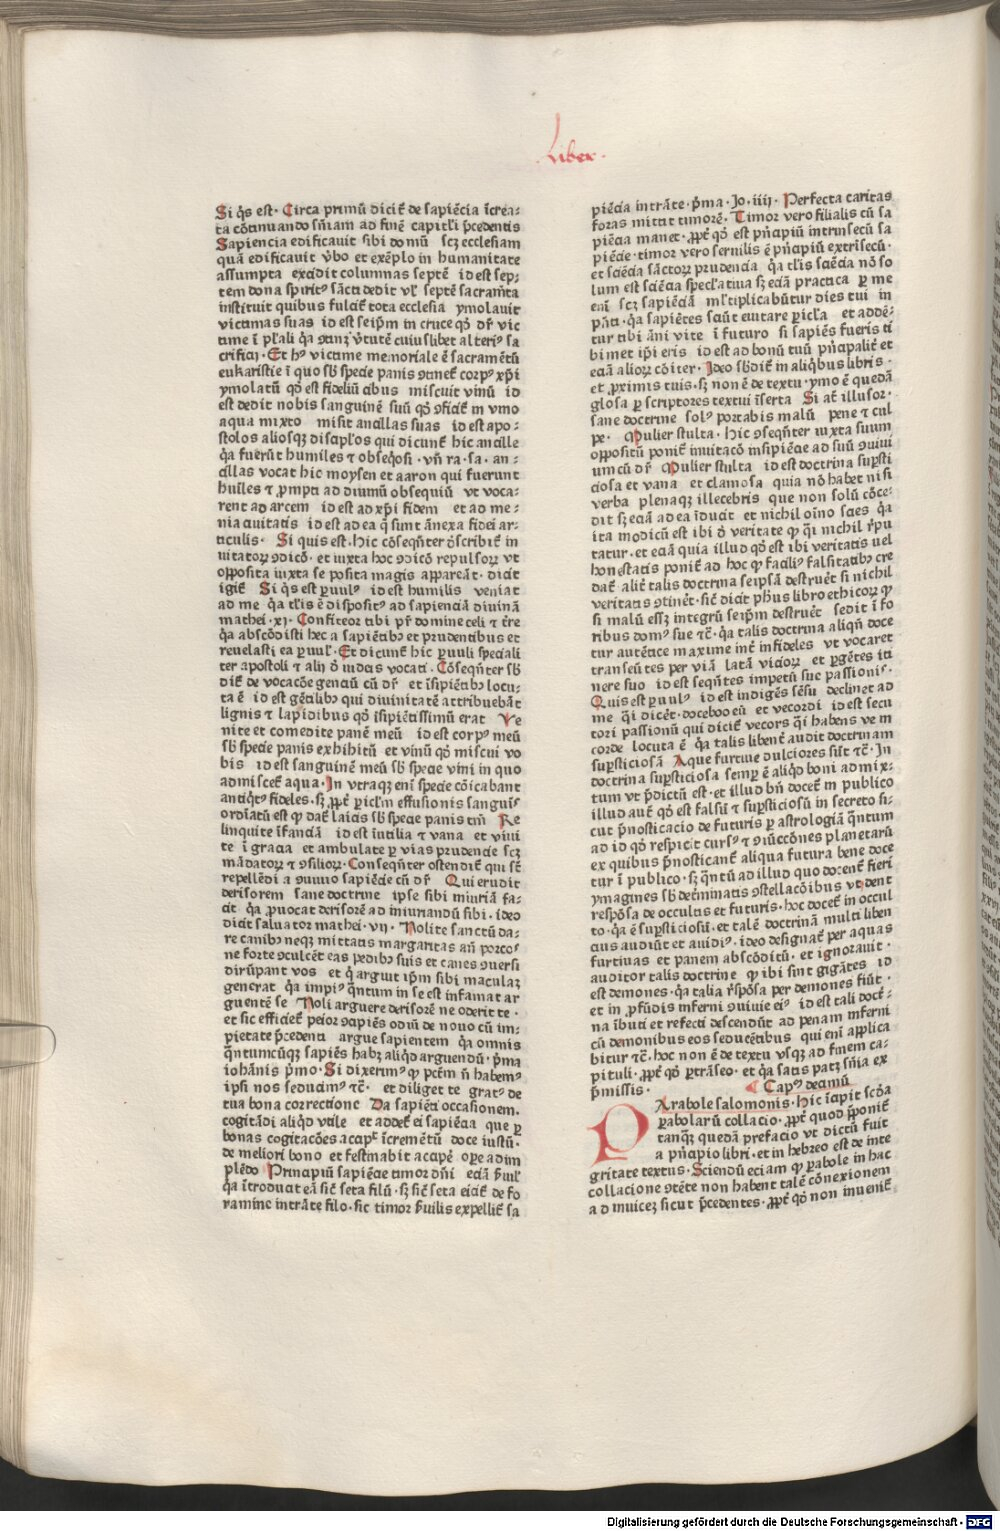 Liber·
Si q̇s est· Circa primū dicit᷒ de sapiēcia īcrea-
ta cōtinuando sñiam ad finē capitl'i p̄cedentis
Sapiencia edificauit sibi domū scꝫ ecclesiam
quā edificauit v̇bo et exēplo in humanitate
assumpta excidit columnas septē id est sep-
tem dona spiritꝰ sācti dedit vl' septē sacramēta
instituit quibus fulcit᷒ tota ecclesia ymolauit
victimas suas id est seip̄m in cruce qd̕ dr̄ vic
time ī pl'ali q̇a ꝯtinꝫ v̇tutē cuiuslibet alteriꝰ sa
crificij· Et hꝰ victime memoriale ē sacramētū
eukaristie ī quo sb̕ specie panis ꝯtinet᷒ corpꝰ xp̄i
ymolatū qd̕ est fideliū cibus miscuit vinū id
est dedit nobis sanguinē suū qd̕ ꝯficit᷒ in vino
aqua mixto misit ancillas suas id est apo-
stolos aliosqꝫ discipl'os qui dicunt᷒ hic ancille
q̇a fuerūt humiles ⁊ obseq̇osi· vñ ra· sa· an-
cillas vocat hic moysen et aaron qui fuerunt
hūiles ⁊ prompti ad diuinū obsequiū vt voca-
rent ad arcem id est ad xp̄i fidem et ad me-
nia ciuitatis id est ad ea q̄ sunt ānexa fidei ar-
ticulis· Si quis est· Hic cōseqn̄ter ꝯ̇scribit᷒ in
uitatorꝝ ꝯdicō· et iuxta hoc ꝯdicō repulsorꝝ vt
opposita iuxta se posita magis appareāt· dicit
igit᷒ Si q̇s est ꝑuulꝰ id est humilis veniat
ad me q̇a tl'is ē dispositꝰ ad sapienciā diuinā
mathei· xj· Confiteor tibi pr̄ domine celi ⁊ t̄re
q̇a abscōdisti hec a sapiētibꝫ et prudentibus et
reuelasti ea ꝑuul'· Et dicunt᷒ hic ꝑuuli speciali
ter apostoli ⁊ alij d̕ iudeis vocati· Cōseqn̄ter sb̕
dit᷒ de vocacōe genciū cū dr̄ et īsipiētibꝫ locu-
ta ē id est gētilibꝫ qui diuinitatē attribuebāt
lignis ⁊ lapidibus qd̕ īsipiētissimū erat Ve
nite et comedite panē meū id est corpꝰ meū
sb̕ specie panis exhibitū et vinū qd̕ miscui vo
bis id est sanguinē meū sb̕ specie vini in quo
admiscet᷒ aqua· In vtraqꝫ enī specie cōicabant
antiq̇tꝰ fideles· sꝫ ꝓpt̕ ꝑicl'm effusionis sanguīs
ordīatū est ꝙ dat᷒ laicis sb̕ specie panis tm̄ Re
linquite īfanciā id est īutilia ⁊ vana et viuite
te ī gracia et ambulate ꝑ vias prudencie scꝫ
mādatorꝝ ⁊ ꝯsiliorꝝ· Conseqn̄ter ostendit᷒ qui sūt
repellēdi a ꝯuiuio sapiēcie cū dr̄ Qui erudit
derisorem sane doctrine ipse sibi iniuriā fa-
cit q̇a ꝓuocat derisorē ad iniuriandū sibi· ideo
dicit saluator mathei· vij· Nolite sanctū da-
re canibꝫ neqꝫ mittatis margaritas añ porcoˢ
ne forte ꝯculcēt eas pedibꝫ suis et canes ꝯuersi
dirūpant vos et q̇ arguit ip̄m sibi maculaꝫ
generat q̇a impiꝰ q̄ntum in se est infamat ar
guentē se Noli arguere derisorē ne oderit te·
et sic efficiet᷒ peior Sapiēs odiū de nouo cū im-
pietate p̄cedenti argue sapientem q̇a omnis
q̄ntumcūqꝫ sapiēs habꝫ aliq̇d arguendū· p̄ma
iohānis p̄mo· Si dixerimꝰ ꝙ pctm̄ ñ habemꝰ
ipsi nos seducimꝰ ⁊c̄· et diliget te gratꝰ de
tua bona correctione Da sapiēti occasionem·
cogitādi aliq̇d vtile et addet᷒ ei sapiēcia que ꝑ
bonas cogitacōes acapit īcremētū doce iustū·
de meliori bono et festinabit acaꝑe ope adim
plēdo Principiū sapiēcie timor dñi eciā s̄uil'
q̇a ītroducit eā sic̄ seta filū· sꝫ sic̄ seta eicit᷒ de fo
ramine intrāte filo· sic timor s̄uilis expellit᷒ sa
piēcia intrāte· p̄ma· Jo· iiij· Perfecta caritas
foras mittit timorē· Timor vero filialis cū sa
piēcia manet· ꝓpt̕ qd̕ est pn̄cipiū intrinsecū sa
piēcie· timor vero seruilis ē pn̄cipiū extrīsecū·
et sciēcia sāctorꝝ prudencia q̇a tl'is sciēcia nō so
lum est sciēcia specl'atiua sꝫ eciā practica ꝑ me
enī scꝫ sapiēciā ml'tiplicabūtur dies tui in
pñti· q̇a sapiētes sciūt euitare ꝑicl'a et addē-
tur tibi āni vite ī futuro si sapiēs fueris ti
bi met ip̄i eris id est ad bonū tuū pn̄cipalit᷒ et
eciā aliorꝝ cōiter· Ideo sb̕dit᷒ in aliq̇bus libris·
et ꝓximis tuis· sꝫ non ē de textu· ymo ē quedā
glosa ꝑ scriptores textui īserta Si at᷒ illusor·
sane doctrine solꝰ portabis malū pene ⁊ cul
pe· Mulier stulta· Hic ꝯseqn̄ter iuxta suum
oppositū ponit᷒ inuitacō insipiēcie ad suū ꝯuiui
um cū dr̄ Mulier stulta id est doctrina suꝑsti
ciosa et vana et clamosa quia nō habet nisi
verba plenaqꝫ illecebris que non solū cōce-
dit sꝫ eciā ad ea īducit et nichil oīno sciēs q̇a
ita modicū est ibi d̕ veritate ꝙ q̇i nichil r̄pu
tatur· et eciā quia illud qd̕ est ibi veritatis uel
honestatis ponit᷒ ad hoc ꝙ faciliꝰ falsitatibꝫ cre
dat᷒ alit᷒ talis doctrina seipsā destruet si nichil
veritatis ꝯtinet· sic̄ dicit ph̄us libro ethicorꝝ ꝙ
si malū essꝫ integrū seip̄m destruet sedit ī fo
ribus domꝰ sue ⁊c̄· q̇a talis doctrina aliqñ doce
tur autētice maxime int᷒ infideles vt vocaret
transeūtes per viā latā viciorꝝ et ꝑgētes iti
nere suo id est seqn̄tes impetū sue passionis·
Quis est ꝑuulꝰ id est indigēs sēsu declinet ad
me q̇i dicēt· docebo eū et vecordi id est secu
tori passionū qui dicit᷒ vecors q̇i habens ve in
corde locuta ē q̇a talis libent᷒ audit doctrinam
suꝑsticiosā Aque furtiue dulciores sūt ⁊c̄· In
doctrina suꝑsticiosa semꝑ ē aliq̇d boni admix-
tum vt p̄dictū est· et illud bn̄ docet᷒ in publico
illud aut᷒ qd̕ est falsū ⁊ suꝑsticiosū in secreto si-
cut p̄nosticacio de futuris ꝑ astrologiā q̄ntum
ad id qd̕ respicit cursꝰ ⁊ ꝯiūccōnes planetarū
ex quibus p̄nosticant᷒ aliqua futura bene doce
tur ī publico· sꝫ q̄ntū ad illud quo docent᷒ fieri
ymagines sb̕ det̕minatis ꝯstellacōibus vt dent
respōsa de occultis et futuris· hoc docet᷒ in occul
to· q̇a ē suꝑsticiosū· et talē doctrinā multi liben
cius audiūt et auidiꝰ· ideo designat᷒ per aquas
furtiuas et panem abscōditū· et ignorauit·
auditor talis doctrine ꝙ ibi sint gigātes id
est demones· q̇a talia r̄spōsa per demones fiūt·
et in ꝓfūdis inferni ꝯuiuie eiꝰ id est tali doct̕-
na ībuti et refecti descendūt ad penam inferni
cū demonibus eos seducētibus qui enī applica
bitur ⁊c̄· hoc non ē de textu vsqꝫ ad finem ca-
pituli· ꝓpt̕ qd̕ ꝑtrāseo· et q̇a satis patꝫ sñia ex
p̄missis·
Capꝰ decimū
PArabole salomonis· Hic īcipit scd̕a
ꝑabolarū collacio· ꝓpt̕ quod p̄ponit᷒
tanqꝫ quedā prefacio vt dictū fuit
a pn̄cipio libri· et in hebreo est de inte
gritate textus· Sciendū eciam ꝙ ꝑabole in hac
collacione ꝯtēte non habent talē cōnexionem
ad inuiceꝫ sicut p̄cedentes· ꝓpt̕ qd̕ non inuenit᷒
Digitalisierung gefördert durch die Deutsche Forschungsgemeinschaft - DFG